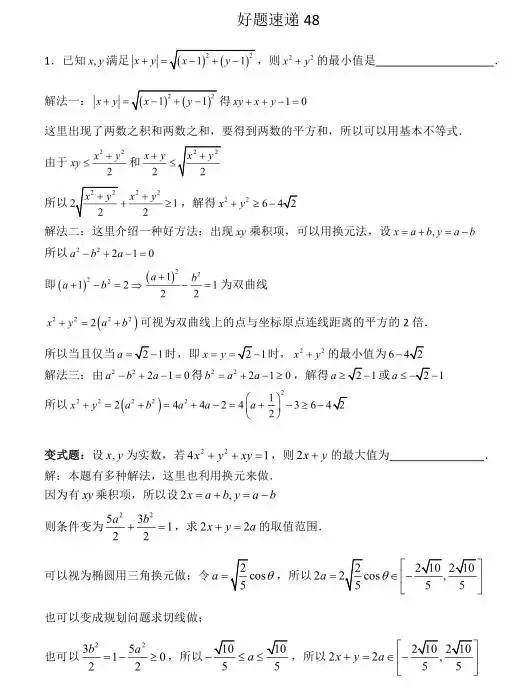 好题速递 48
1．已知 x, y 满足 |x+y|=√((x−1)²+(y−1)²)，则 x²+y² 的最小值是________________．
解法一：|x+y|=√((x−1)²+(y−1)²) 得 xy+x+y−1=0
这里出现了两数之积和两数之和，要得到两数的平方和，所以可以用基本不等式．
由于 xy≤(x²+y²)/2 和 (x+y)/2≤√((x²+y²)/2)
所以 2√((x²+y²)/2)+(x²+y²)/2≥1，解得 x²+y²≥6−4√2
解法二：这里介绍一种好方法：出现 xy 乘积项，可以用换元法，设 x=a+b, y=a−b
所以 a²−b²+2a−1=0
即 (a+1)²−b²=2⇒(a+1)²/2−b²/2=1 为双曲线
x²+y²=2(a²+b²) 可视为双曲线上的点与坐标原点连线距离的平方的 2 倍．
所以当且仅当 a=√2−1 时，即 x=y=√2−1 时，x²+y² 的最小值为 6−4√2
解法三：由 a²−b²+2a−1=0 得 b²=a²+2a−1≥0，解得 a≥√2−1 或 a≤−√2−1
所以 x²+y²=2(a²+b²)=4a²+4a−2=4(a+1/2)²−3≥6−4√2
变式题：设 x, y 为实数，若 4x²+y²+xy=1，则 2x+y 的最大值为________________．
解：本题有多种解法，这里也利用换元来做．
因为有 xy 乘积项，所以设 2x=a+b, y=a−b
则条件变为 5a²/2+3b²/2=1，求 2x+y=2a 的取值范围．
可以视为椭圆用三角换元做：令 a=√(2/5)cosθ，所以 2a=2√(2/5)cosθ∈[−2√10/5, 2√10/5]
也可以变成规划问题求切线做；
也可以 3b²/2=1−5a²/2≥0，所以 −√10/5≤a≤√10/5，所以 2x+y=2a∈[−2√10/5, 2√10/5]